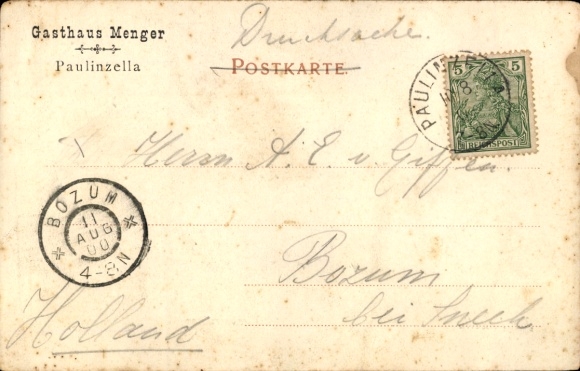 Gasthaus Menger
Paulinzella
Drucksache.
POSTKARTE.
5 5
REICHSPOST
PAULINZELLA
8
Herrn A. E. v. Giffen
BOZUM
11
AUG
00
4-8N
Bozum
bei Sneek
Holland